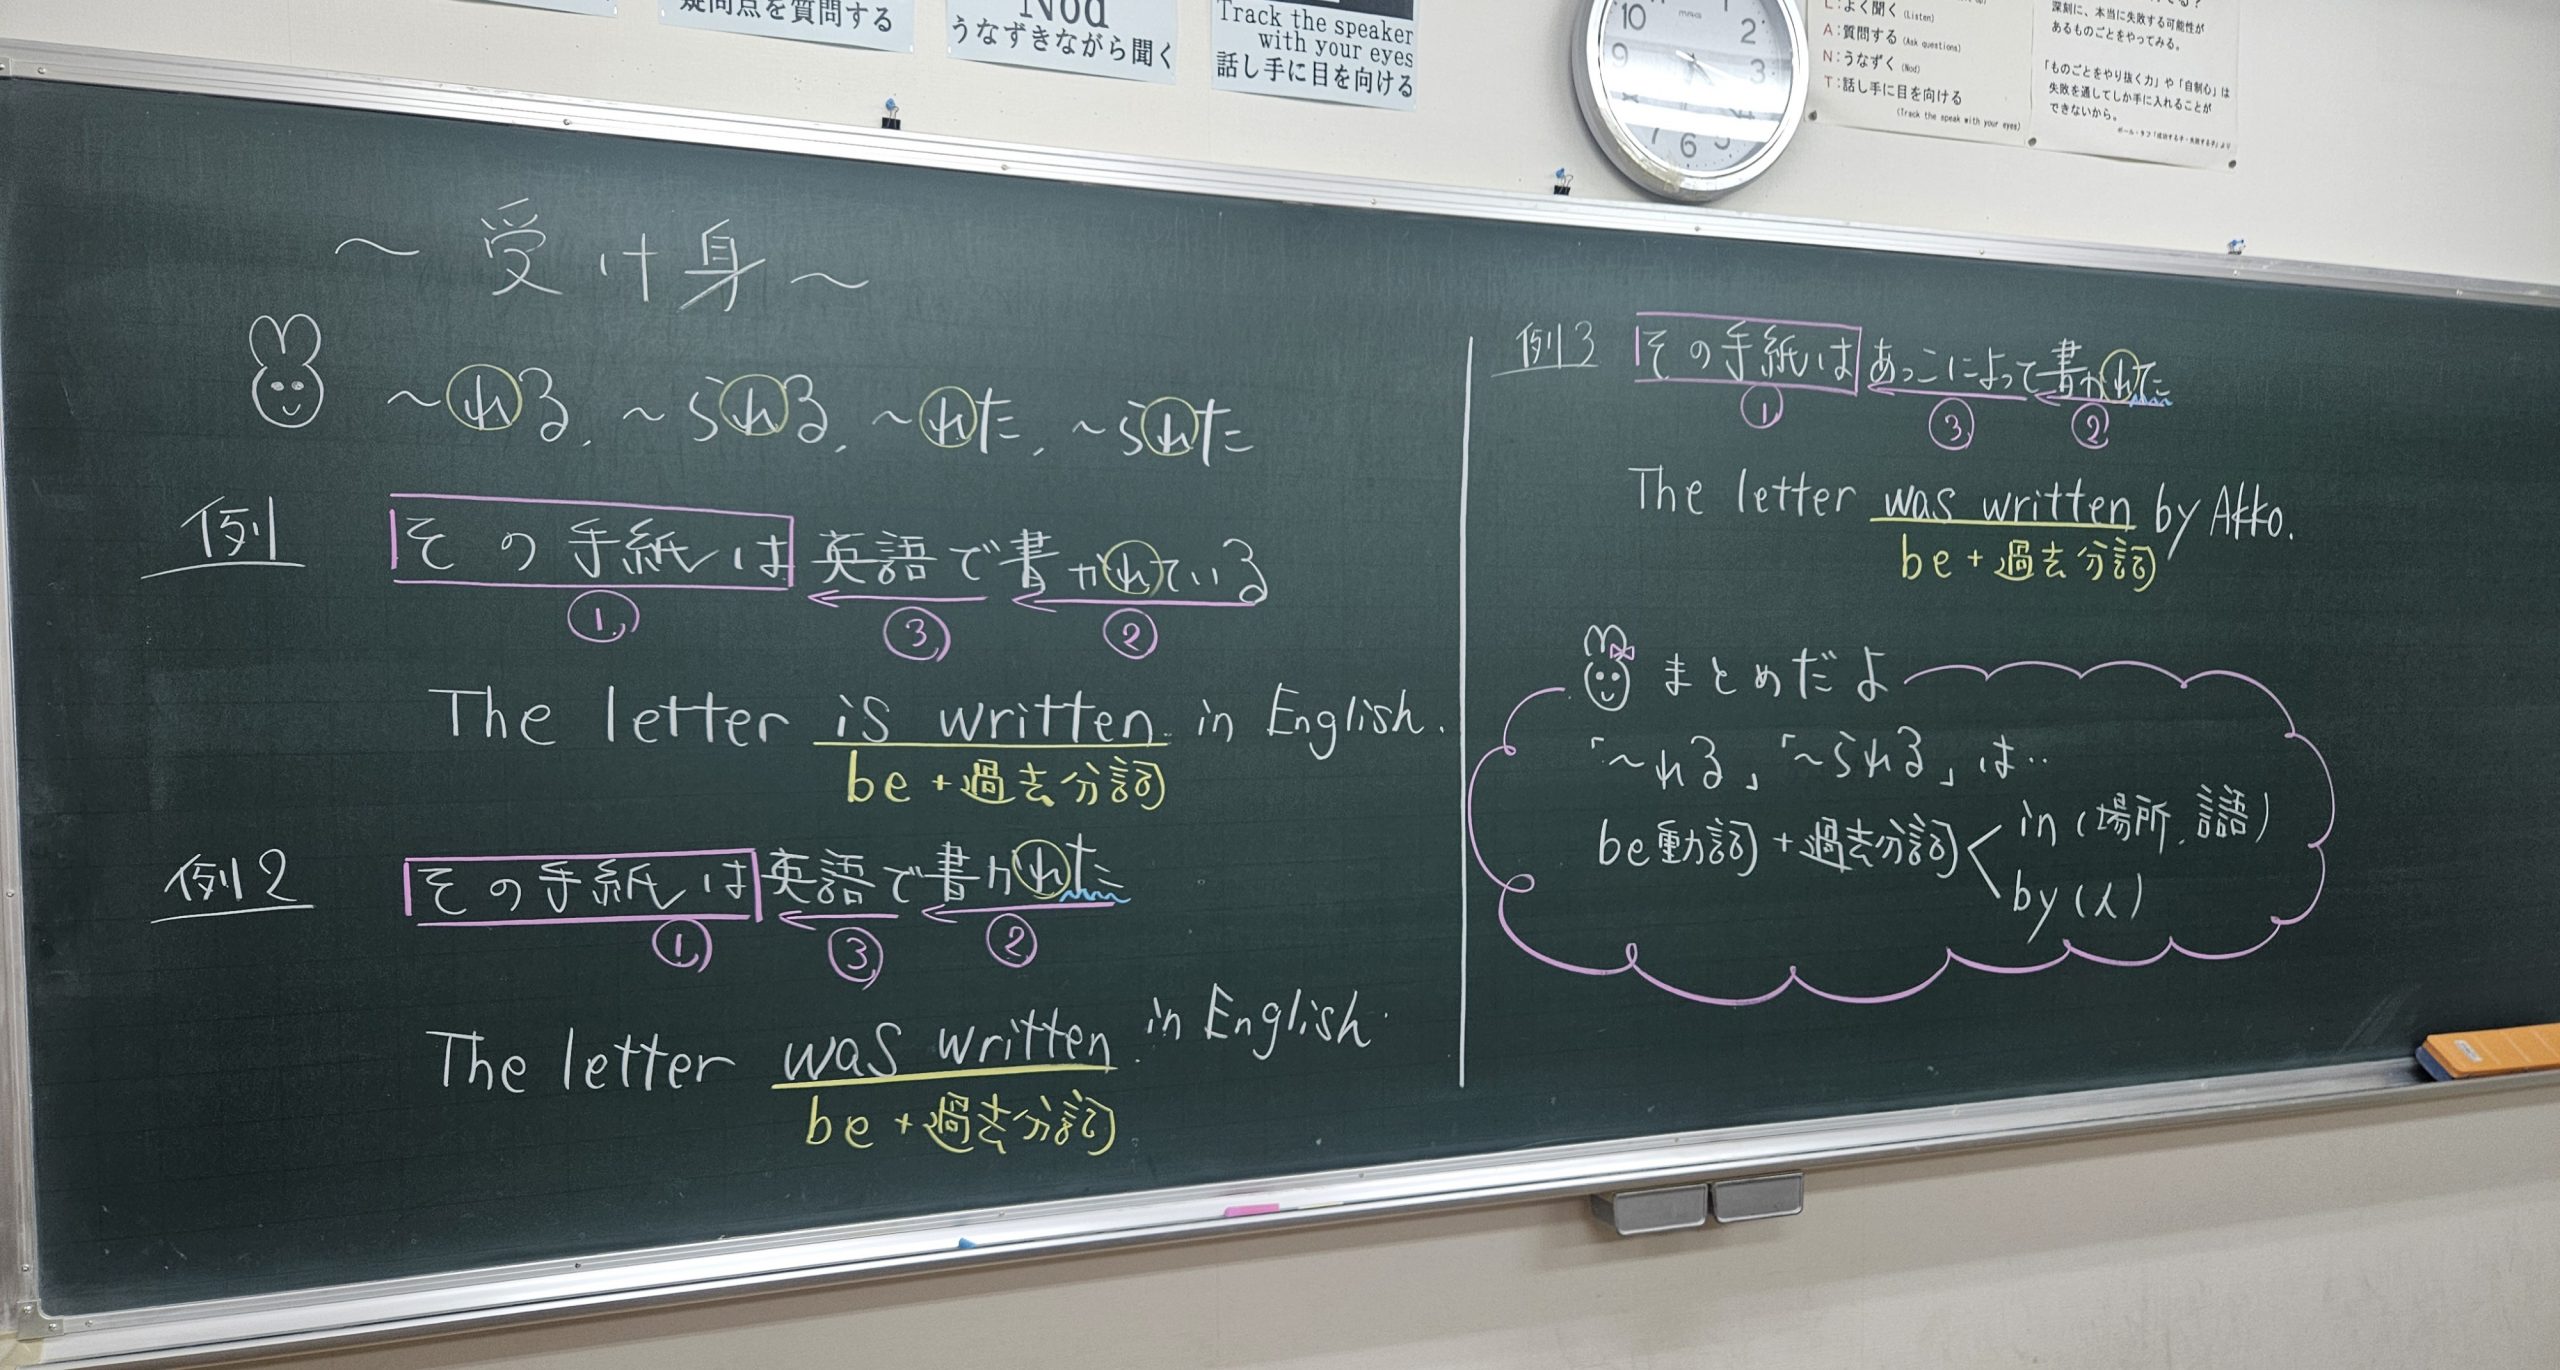 疑問点を質問する
Nod
うなずきながら聞く
Track the speaker
with your eyes
話し手に目を向ける
10
1
2
9
3
7
6
5
よく聞く (Listen)
A:質問する (Ask questions)
N:うなずく (Nod)
T:話し手に目を向ける
(Track the speak with your eyes)
深刻に、本当に失敗する可能性が
あるものごとをやってみる。
「ものごとをやり抜く力」や「自制心」は
失敗を通してしか手に入れることが
できないから。
ポール・タフ「成功する子・失敗する子」より
〜受け身〜
〜れる, 〜られる, 〜れた, 〜られた
例1 その手紙は英語で書かれている
① ③ ②
The letter is written in English.
be+過去分詞
例2 その手紙は英語で書かれた
① ③ ②
The letter was written in English.
be+過去分詞
例3 その手紙はあっこによって書かれた
① ③ ②
The letter was written by Akko.
be+過去分詞
まとめだよ
「〜れる」「〜られる」は‥
be動詞+過去分詞
in(場所,言語)
by(人)